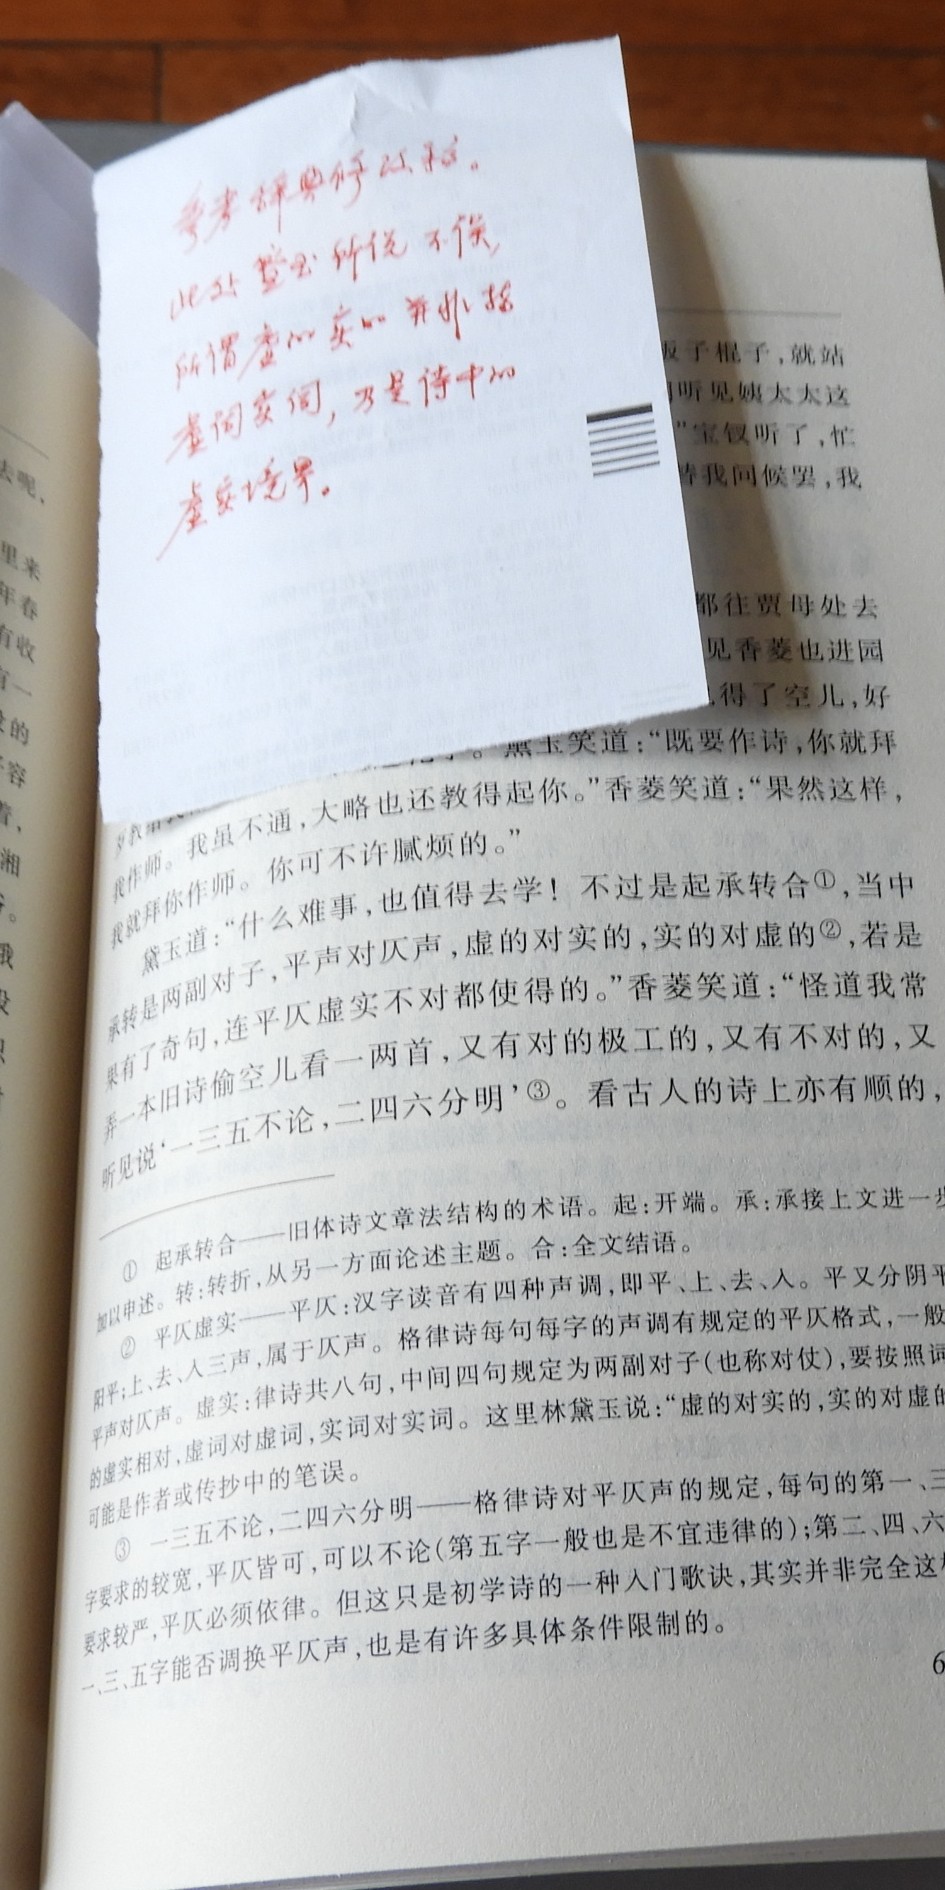 参考辞典修改稿。
此处黛玉所说不误,
所谓虚的实的并非指
虚词实词,乃是诗中的
虚实境界。
去呢,
里来
年春
有收
的
容
着,
湘
哦
没
板子棍子,就站
听见姨太太这
”宝钗听了,忙
替我问候罢,我
都往贾母处去
见香菱也进园
得了空儿,好
黛玉笑道:“既要作诗,你就拜
我作师。我虽不通,大略也还教得起你。”香菱笑道:“果然这样,
我就拜你作师。你可不许腻烦的。”
黛玉道:“什么难事,也值得去学!不过是起承转合①,当中
承转是两副对子,平声对仄声,虚的对实的,实的对虚的②,若是
果有了奇句,连平仄虚实不对都使得的。”香菱笑道:“怪道我常
弄一本旧诗偷空儿看一两首,又有对的极工的,又有不对的,又
听见说‘一三五不论,二四六分明’③。看古人的诗上亦有顺的,
① 起承转合——旧体诗文章法结构的术语。起:开端。承:承接上文进一步
加以申述。转:转折,从另一方面论述主题。合:全文结语。
② 平仄虚实——平仄:汉字读音有四种声调,即平、上、去、入。平又分阴平
阳平;上、去、入三声,属于仄声。格律诗每句每字的声调有规定的平仄格式,一般
平声对仄声。虚实:律诗共八句,中间四句规定为两副对子(也称对仗),要按照词
的虚实相对,虚词对虚词,实词对实词。这里林黛玉说:“虚的对实的,实的对虚的
可能是作者或传抄中的笔误。
③ 一三五不论,二四六分明——格律诗对平仄声的规定,每句的第一、三
字要求的较宽,平仄皆可,可以不论(第五字一般也是不宜违律的);第二、四、六
要求较严,平仄必须依律。但这只是初学诗的一种入门歌诀,其实并非完全这样
一、三、五字能否调换平仄声,也是有许多具体条件限制的。
6